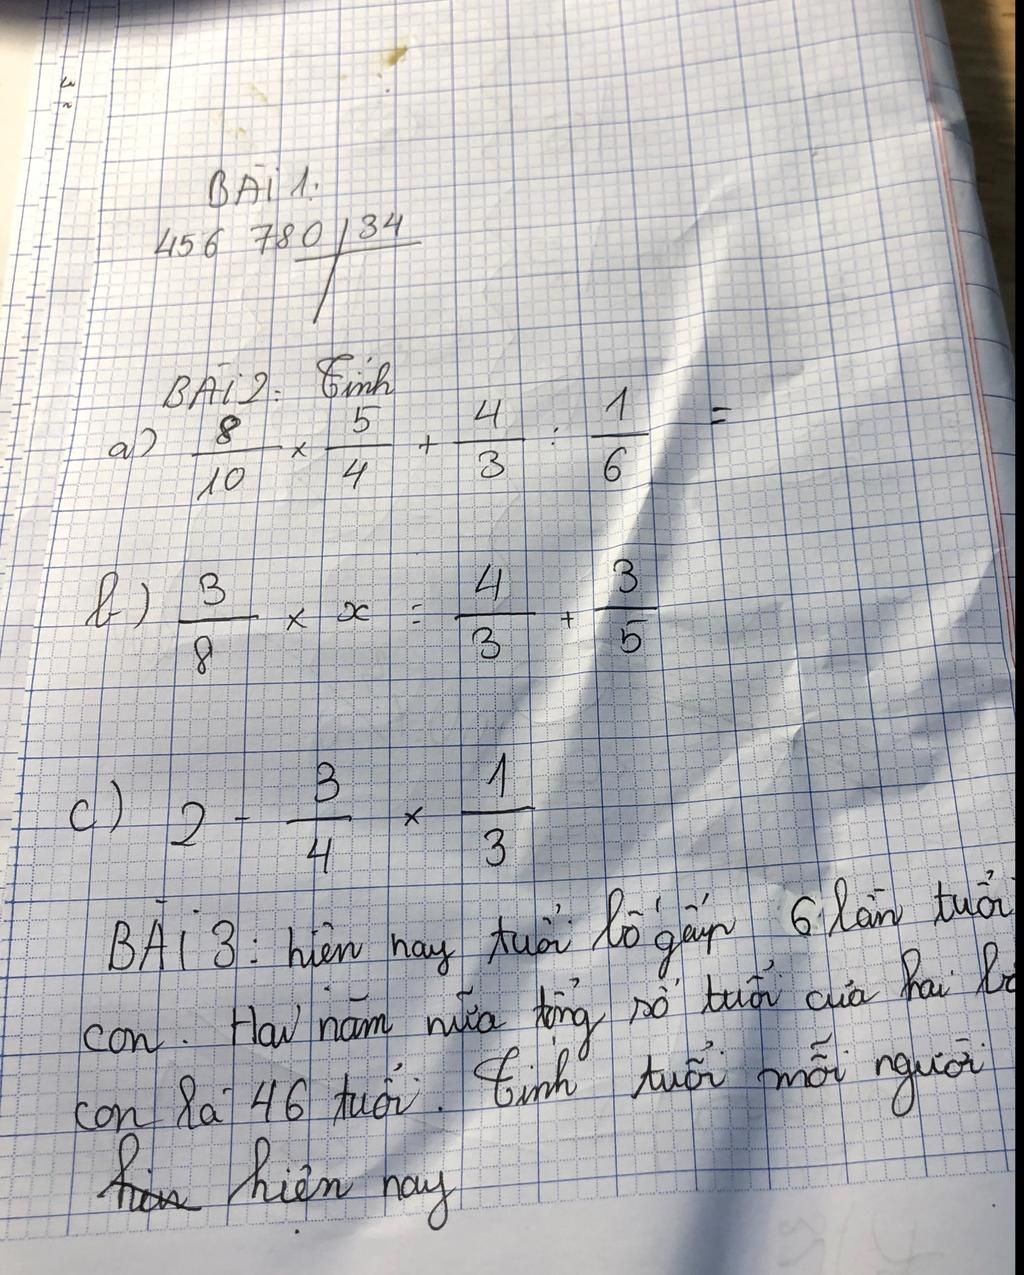 BÀI 1.
456 780 | 34
BÀI 2: Tính
a) 8/10 × 5/4 + 4/3 : 1/6 =
b) 3/8 × x = 4/3 + 3/5
c) 2 - 3/4 × 1/3
BÀI 3: hiện nay tuổi bố gấp 6 lần tuổi
con. Hai năm nữa tổng số tuổi của hai bố
con là 46 tuổi. Tính tuổi mỗi người
hiện nay